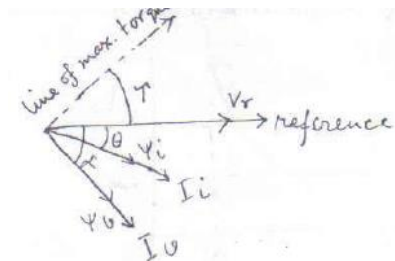 line of max. torque
τ
Vr
reference
θ
r
ψi
Ii
ψυ
Iυ